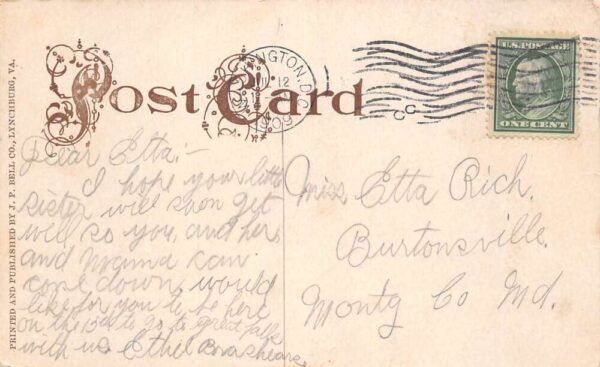 PRINTED AND PUBLISHED BY J. P. BELL CO., LYNCHBURG, VA.
Post Card
INGTON, D.C.
12
U.S. POSTAGE
ONE CENT
Dear Etta:-
I hope your little
sister will soon get
well, so you, and her
and Mama can
come down, would
like for you to be here
on the 13th to go to great falls
with us. Ethel Brashears
Miss Etta Rich.
Burtonsville.
Montg Co Md.